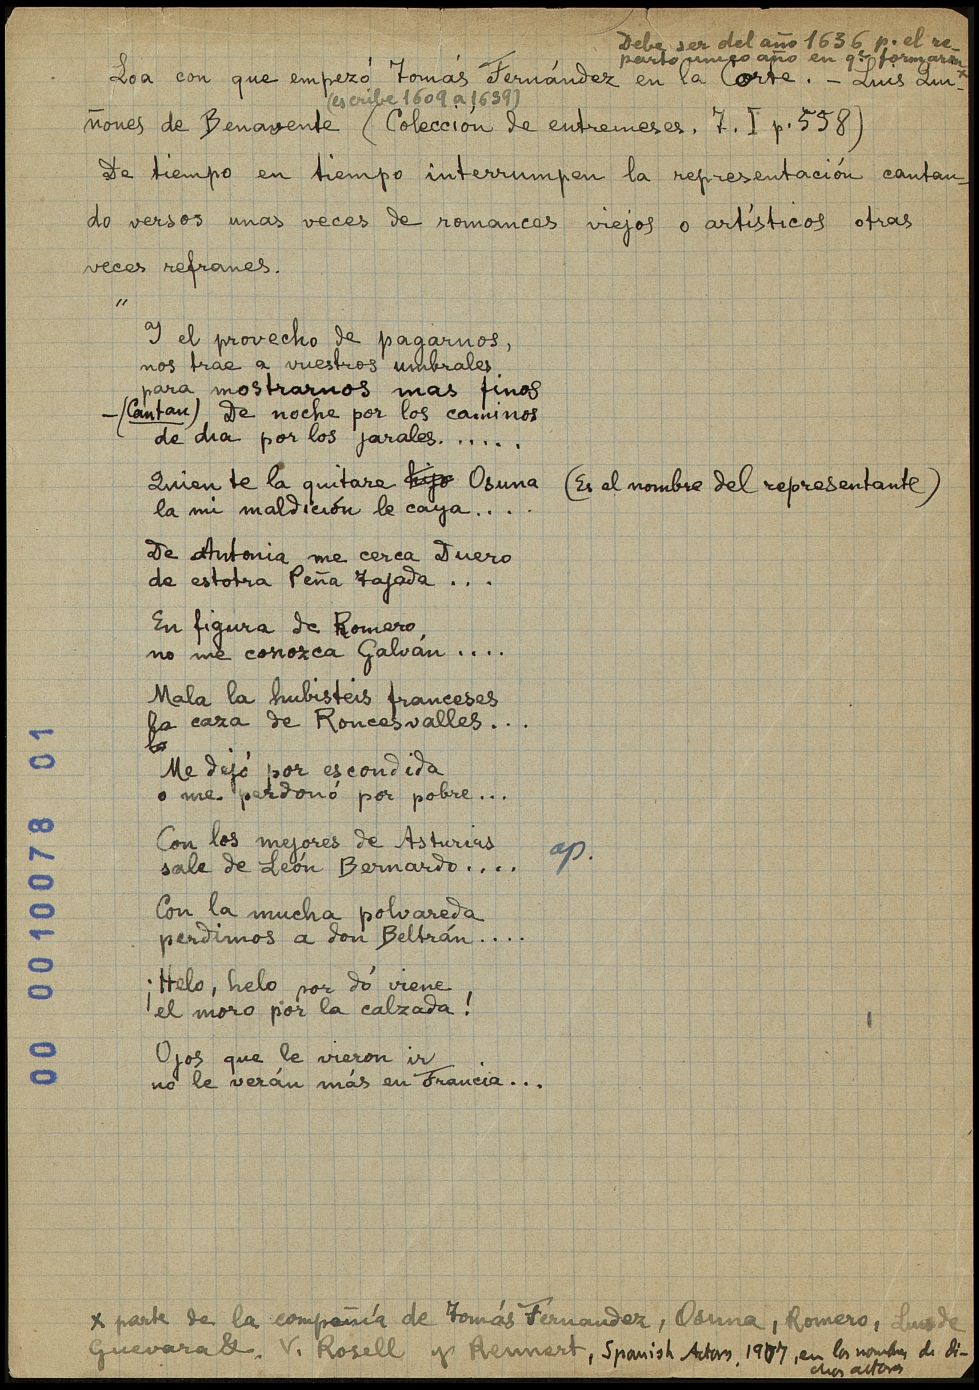 Debe ser del año 1636 p. el re-
parto único año en q.e formaron x
Loa con que empezó Tomás Fernández en la Corte. - Luis Qui-
(escribe 1609 a 1639)
ñones de Benavente (Colección de entremeses. T. I p. 558)
De tiempo en tiempo interrumpen la representación cantan-
do versos unas veces de romances viejos o artísticos otras
veces refranes.
"
Y el provecho de pagarnos,
nos trae a vuestros umbrales
para mostrarnos mas finos
-(Cantan) De noche por los caminos
de dia por los jarales.....
Quien te la quitare hijo Osuna (Es el nombre del representante)
la mi maldición le caya....
De Antonia me cerca Duero
de estotra Peña Tajada ...
En figura de Romero
no me conozca Galván ....
Mala la hubisteis franceses
la caza de Roncesvalles...
la
Me dejó por escondida
o me perdonó por pobre...
Con los mejores de Asturias
sale de León Bernardo.... ap.
Con la mucha polvareda
perdimos a don Beltrán....
¡Helo, helo por dó viene
el moro por la calzada!
Ojos que le vieron ir
no le verán más en Francia...
00 0010078 01
x parte de la compañía de Tomás Fernandez, Osuna, Romero, Luis de
Guevara &. V. Rosell y Rennert, Spanish Actors, 1907, en los nombres de di-
chos actores